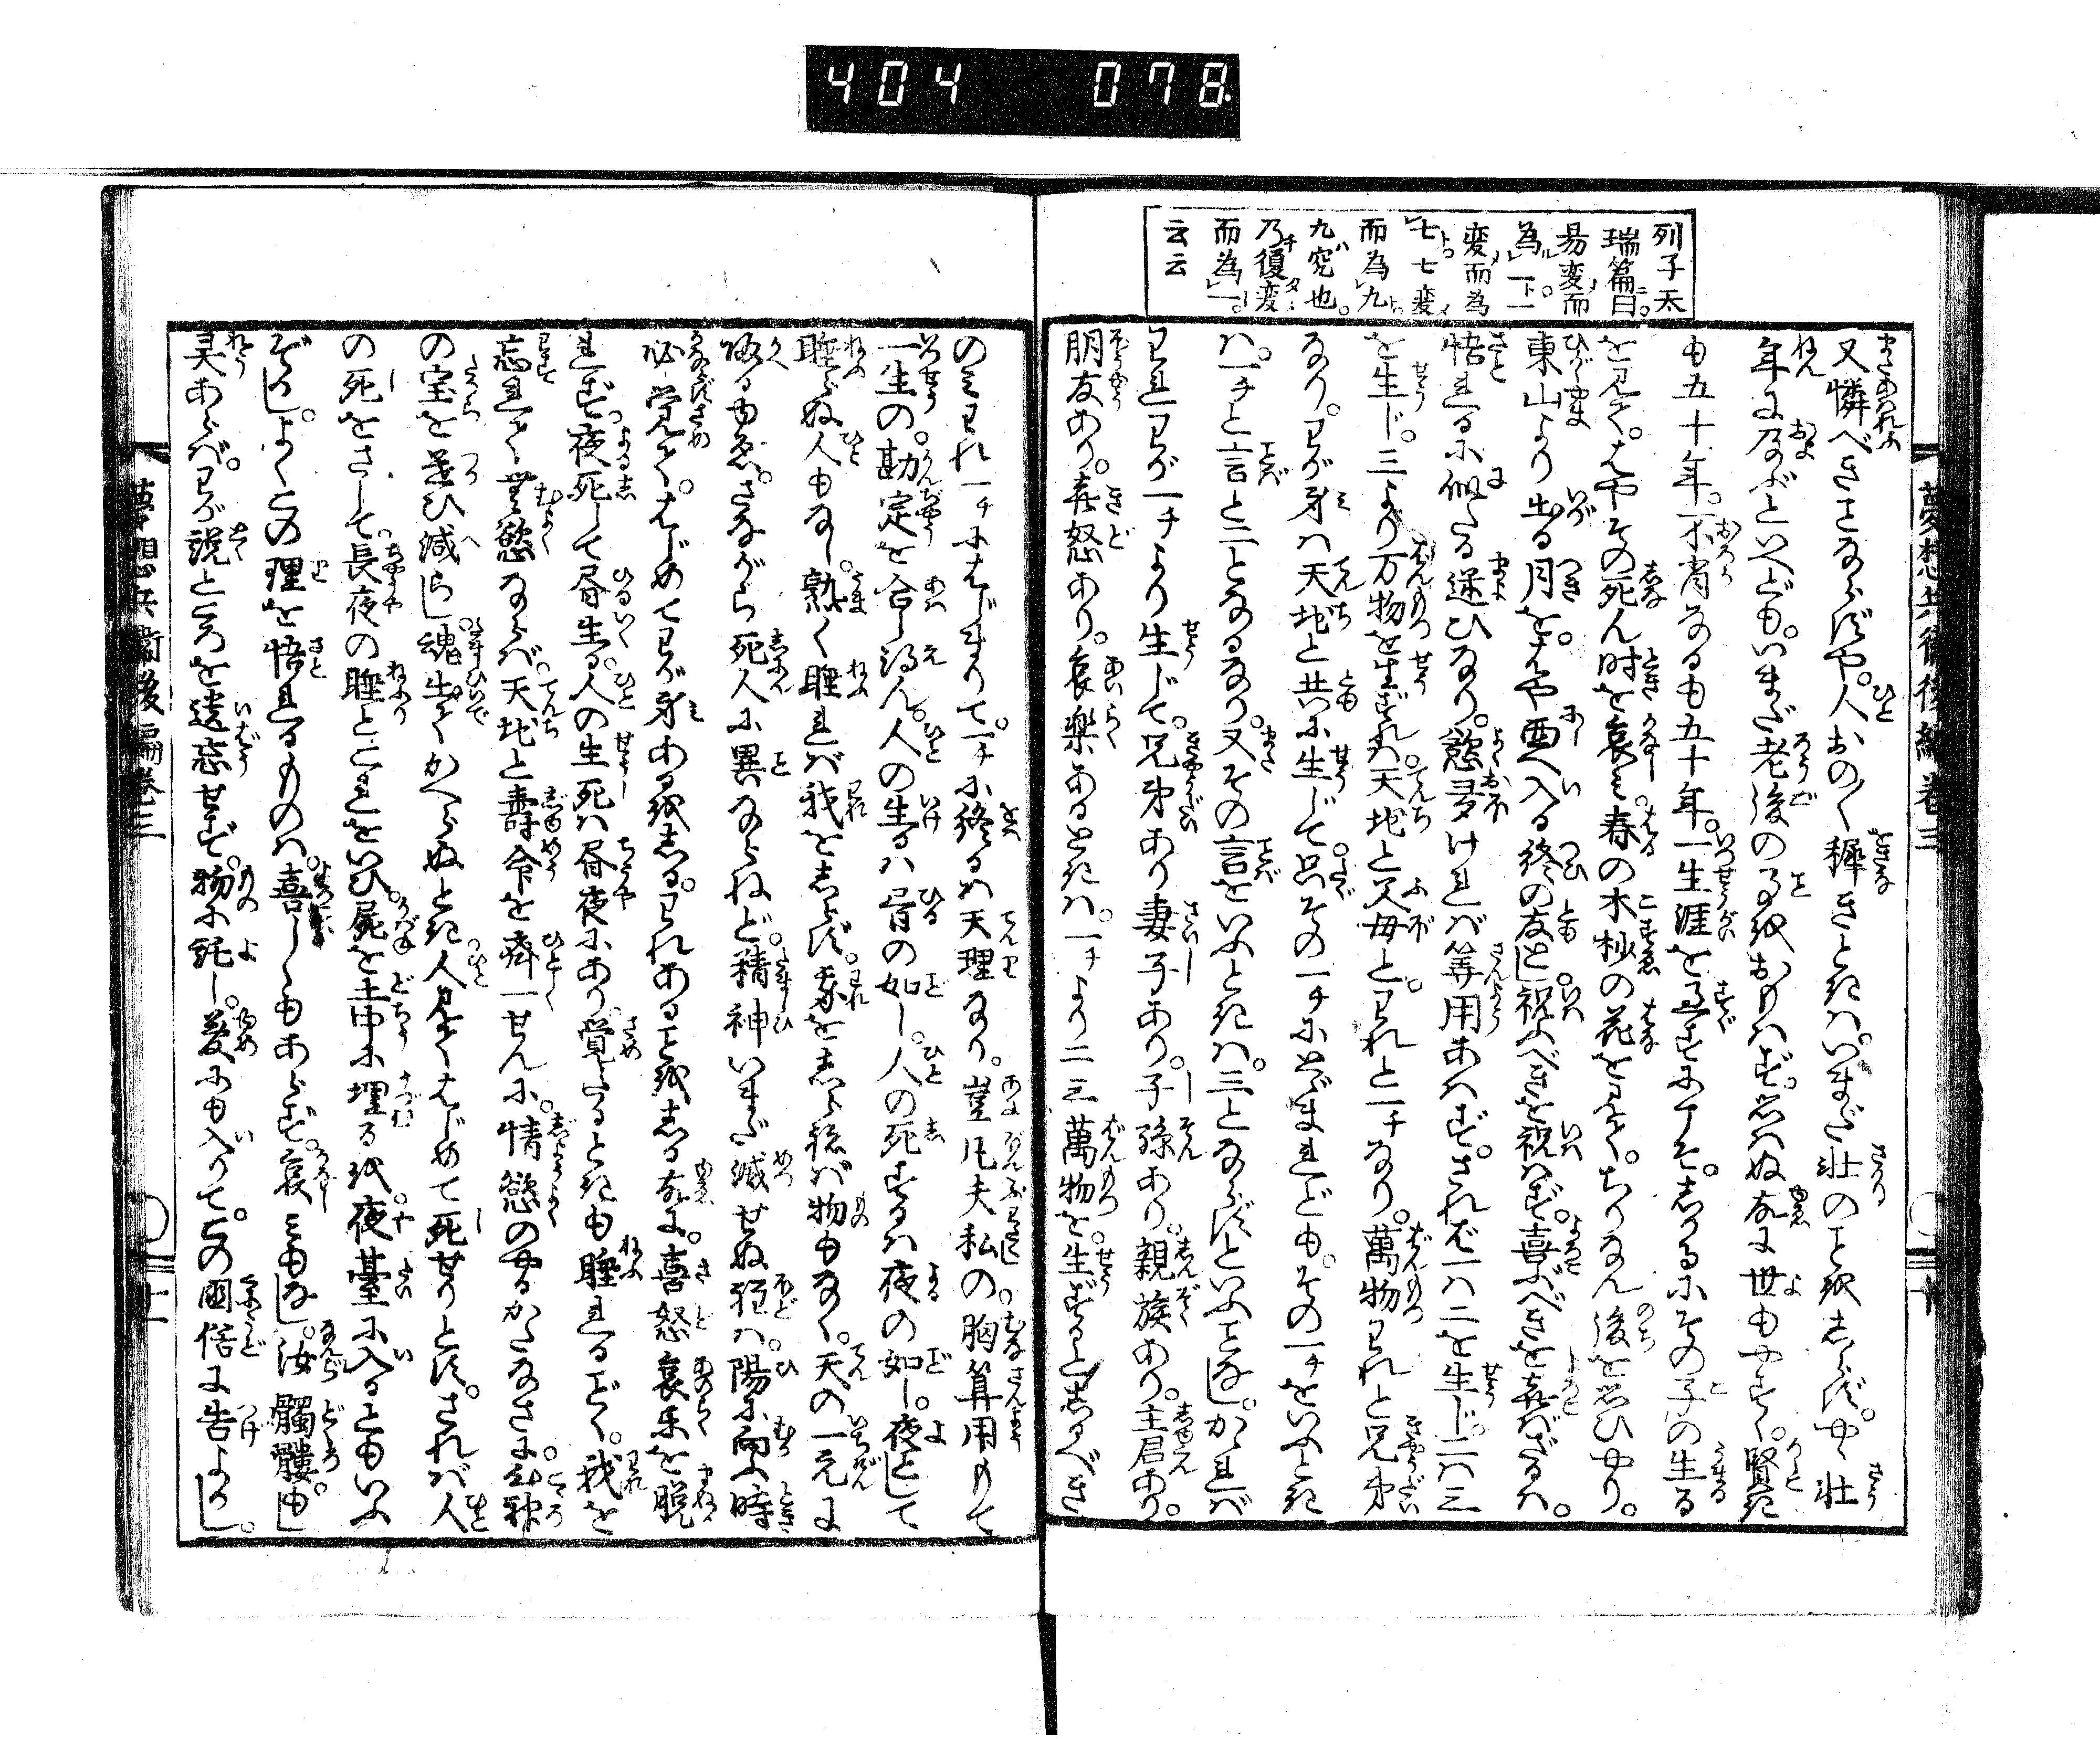 404 078.
夢想兵衛後編巻三
列子天
瑞篇曰。
易変而
為一。一
変而為
七。七変
而為九。
九究也。
乃復変
而為一。
云云
又憐べきことならずや。人おの〱穉きときは。いまだ壮のことをしらず。や丶壮
年に及ぶといへども。いまだ老後のことをおもはず。思はぬ故に世もやすく。賢き
も五十年。不肖なるも五十年。一生涯を過すにこそ。しかるにその子の生る
を見て。はやその死ん時を哀み。春の木杪の花を見て。ちりなん後を思ひやり。
東山より出る月を。はや西へ入る終の友とし。祝ふべきを祝はず。喜ぶべきを喜ばざるは。
悟れるに似たる迷ひなり。慾多ければ算用あはず。されば一は二を生じ。二は三
を生じ。三より万物を生ずれば。天地と父母と。われと一チなり。萬物われと兄弟
なり。わが身は天地と共に生じて。只その一チにとゞまれども。その一チをいふとき
は。一チと言と二となるなり。又その言をいふときは。三とならずといふことなし。かゝれば
われわが一チより生じて。兄弟あり妻子あり。子孫あり。親族あり。主君あり。
朋友あり。喜怒あり。哀樂あるときは。一チより二三萬物を。生ずるとしるべき
のみわれ一チにはじまりて。一チに終るは天理なり。豈凡夫私の。胸算用もて
一生の。勘定を合し得ん。人の生るは昼の如し。人の死するは夜の如し。夜として
睡らぬ人もなし。熟く睡れば我をしらず。我をしらねば物もなく。天の一元に
帰るもの。さながら死人に異ならねど。精神いまだ滅せぬ程は。陽に向ふ時
必覚て。はじめてわが身あるをしる。われあることをしる故に。喜怒哀樂を脱
れず。夜死して昼生る。人の生死は昼夜にあり。覚たるときも睡れるごとく。我を
忘れて無慾ならば。天地と壽命を齊一せんに。情慾のやるかたなさに。心神
の宝を遣ひ減らし。魂出てかへらぬとき人見てはじめて死せりとす。されば人
の死をさして。長夜の睡とこれをいひ。屍を土中に埋るを。夜臺に入るともいふ
ぞかし。よくこの理を悟れるものは。喜しくもあらず。哀みもなし。汝髑髏もし
霊あらば。わが説ところを遺忘せず。物に託し。夢にも入りて。この國俗に告よかし。
夢想兵衛後編巻三